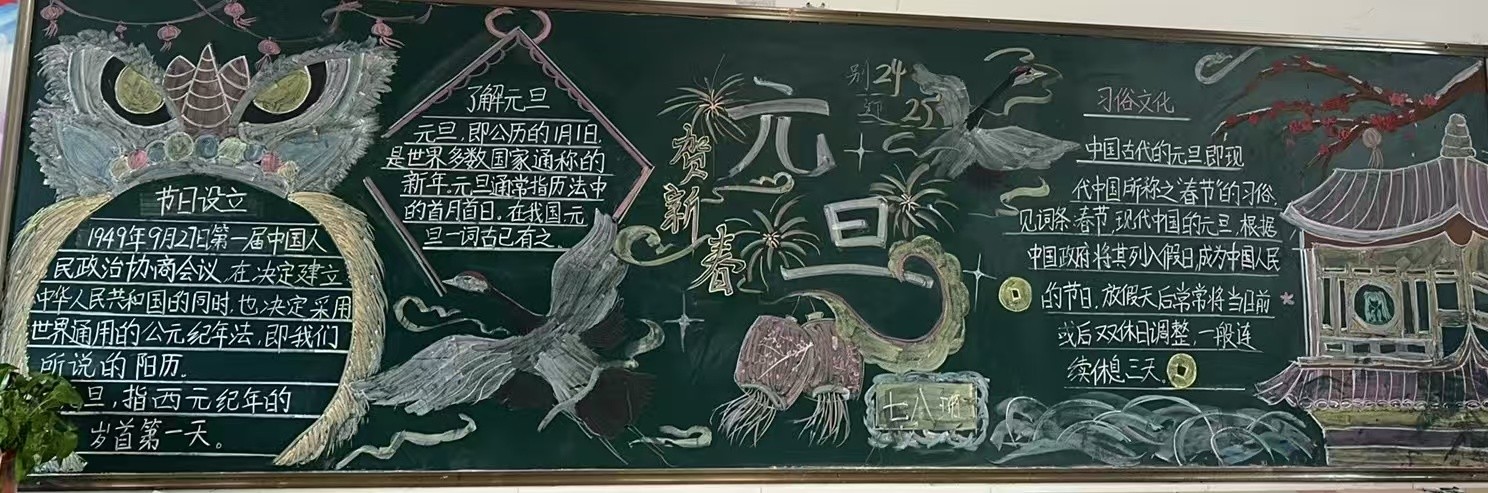 节日设立
1949年9月27日第一届中国人
民政治协商会议,在决定建立
中华人民共和国的同时,也决定采用
世界通用的公元纪年法,即我们
所说的阳历.
旦,指西元纪年的
岁首第一天。
了解元旦
元旦,即公历的1月1日,
是世界多数国家通称的
新年.元旦通常指历法中
的首月首日.在我国元
旦一词古已有之.
贺新春
元旦
别24
迎25
七八班
习俗文化
中国古代的元旦即现
代中国所称之"春节"的习俗.
见词条:春节.现代中国的元旦,根据
中国政府将其列入假日,成为中国人民
的节日,放假天后常常将当日前
或后双休日调整,一般连
续休息三天.